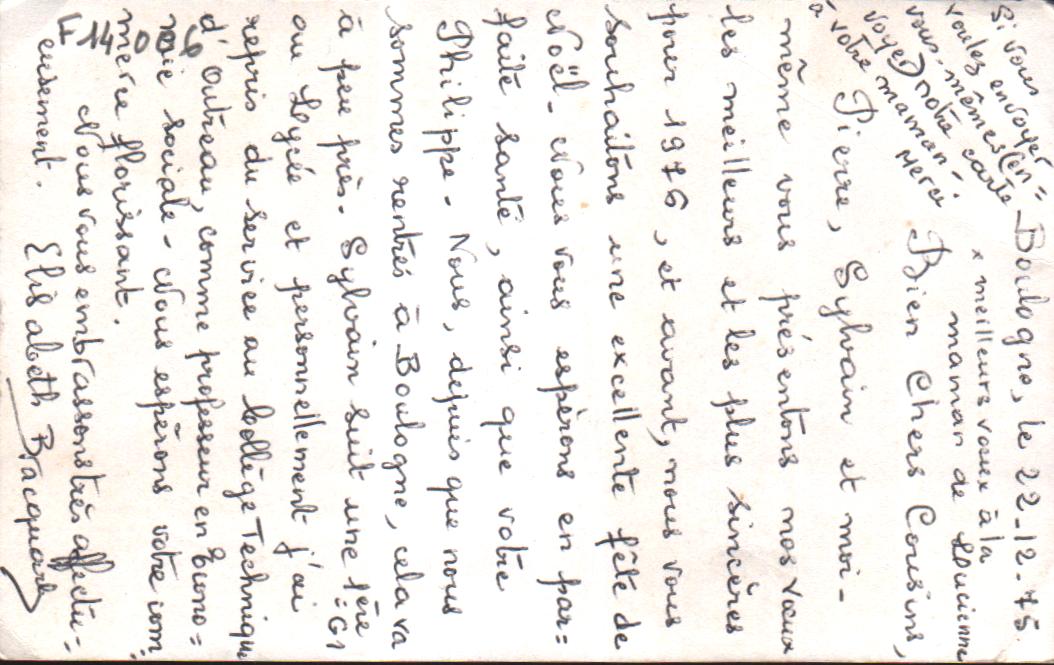 Si vous
voulez envoyer
vous-mêmes (en=
voyer) notre carte
à votre maman-.
Merci
Boulogne, le 22-12-75.
x meilleurs vœux à la
maman de Lucienne
Bien Chers Cousins,
Pierre, Sylvain et moi-
même vous présentons nos vœux
les meilleurs et les plus sincères
pour 1976, et avant, nous vous
souhaitons une excellente fête de
Noël- Nous vous espérons en par=
faite santé, ainsi que votre
Philippe- Nous, depuis que nous
sommes rentrés à Boulogne, cela va
à peu près- Sylvain suit une 1ère
=G1
au Lycée et personnellement j'ai
repris du service au Collège Technique
d'Outreau, comme professeur en Econo=
mie sociale- Nous espérons votre com=
merce florissant.
Nous vous embrassons très affectu=
eusement. Elisabeth